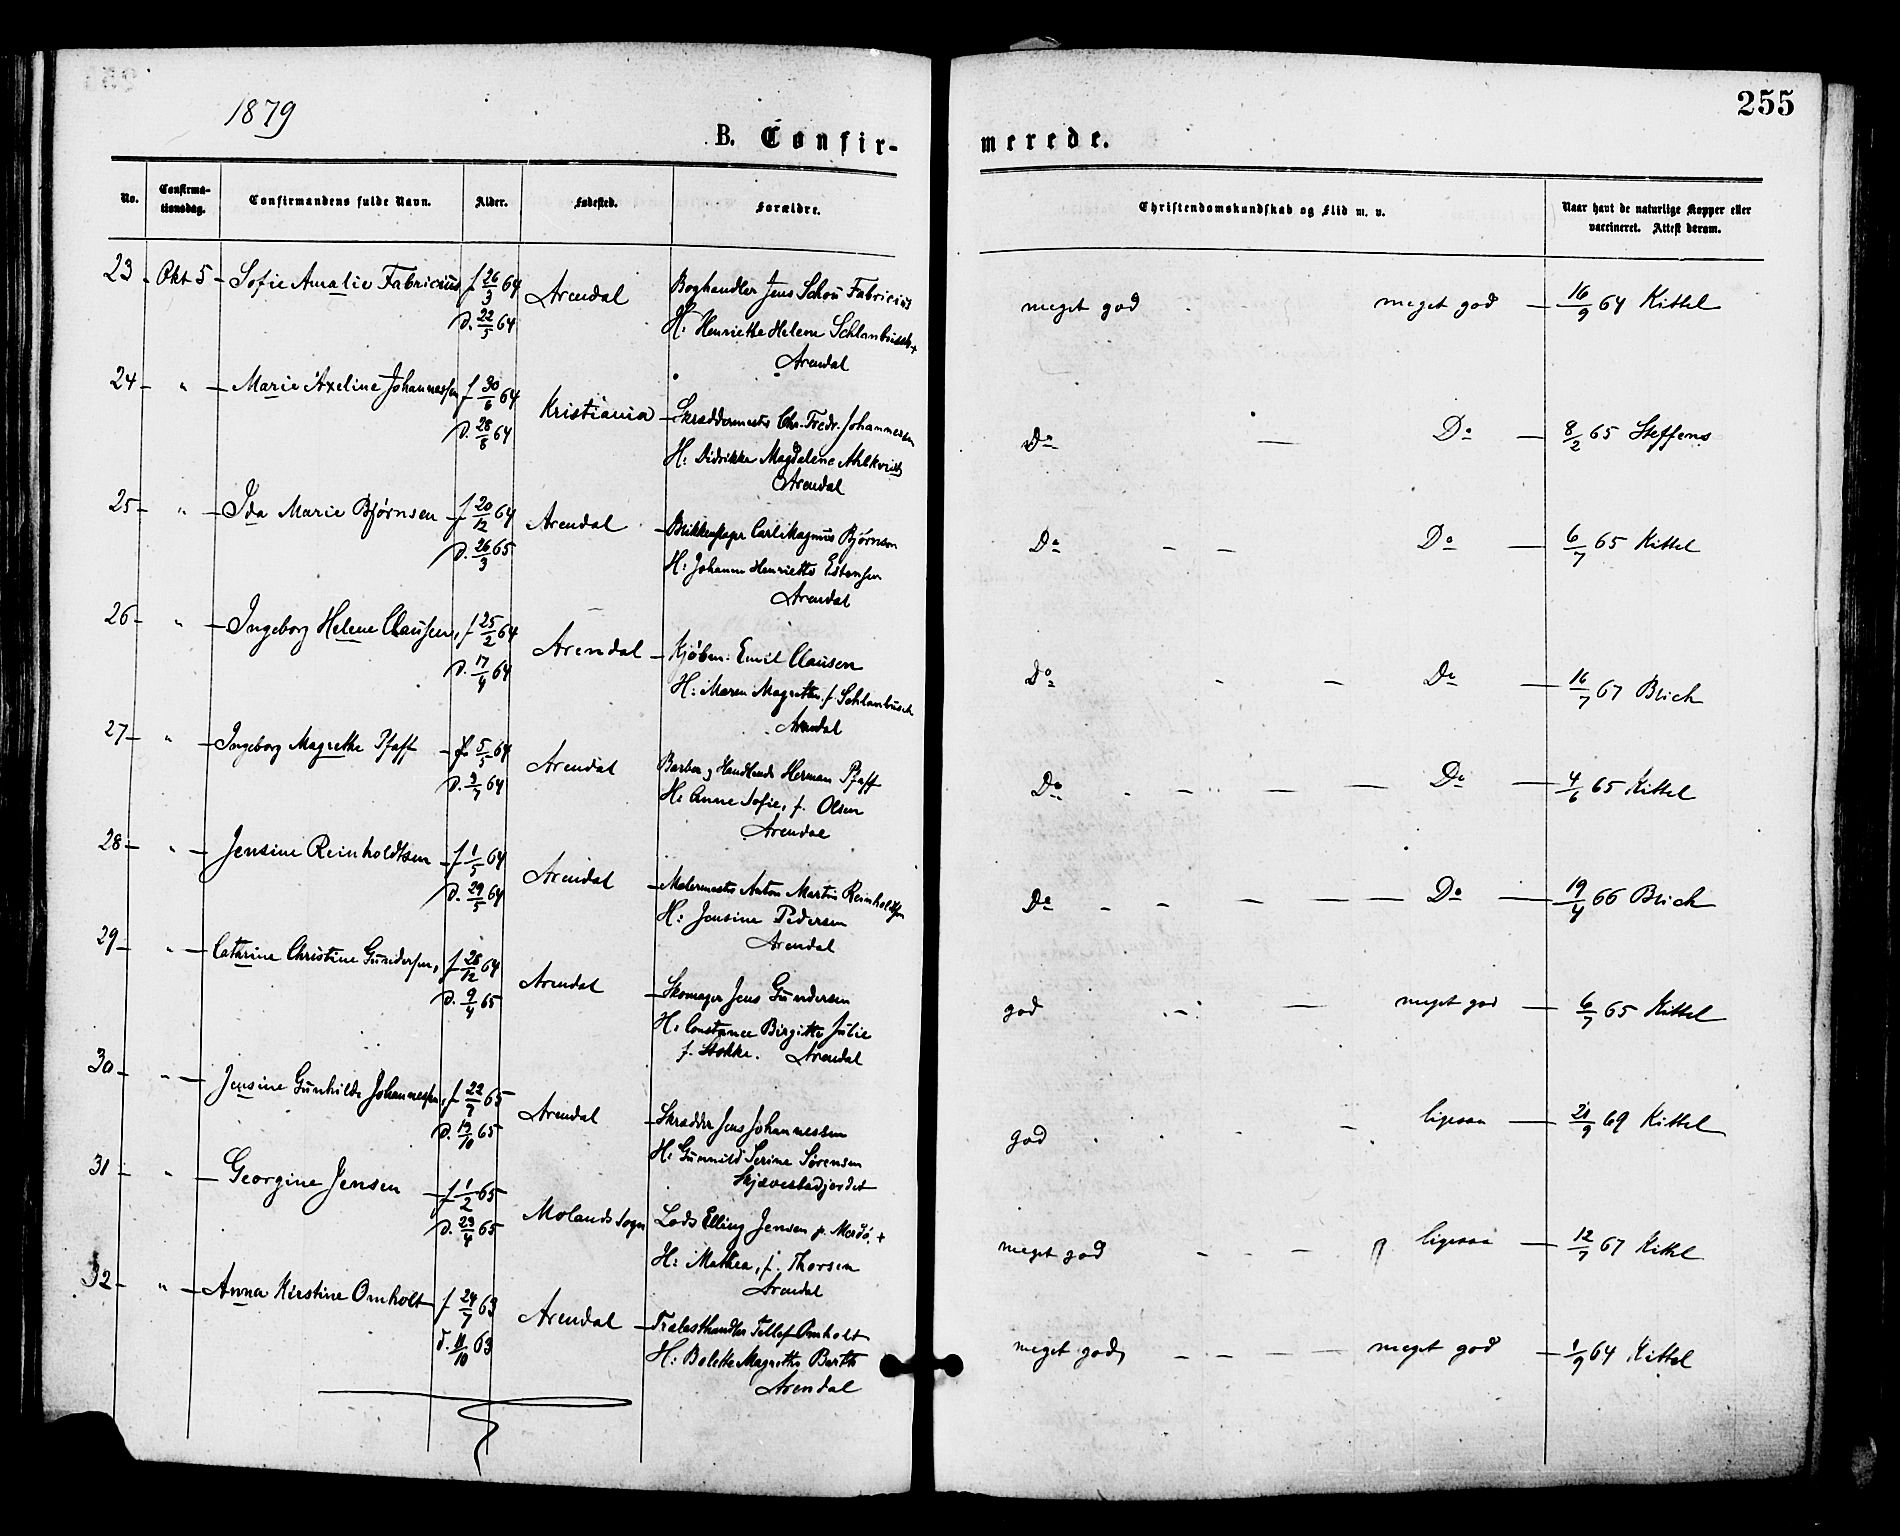 1879
255
B. Confir-
merede.
No.
Confirma-
tionsdag.
Confirmandens fulde Navn.
Alder.
Fødested.
Forældre.
Christendomskundskab og Flid m. v.
Naar havt de naturlige Kopper eller
vaccineret. Attest derom.
23 - Okt 5 - Sofie Amalie Fabricius f 26/3 64 Arendal Boghandler Jens Schou Fabricius meget god meget god - 16/9 64 Kittel
D. 22/5 64 H: Henriette Helene
Arendal
24 - " - Marie Axeline Johannessen f 30/6 64 Kristiania - Skræddermester Chr. Fredr. Johannessen Do - Do - 8/2 65 Steffens
D. 28/8 64 H: Didrikke Magdalene
Arendal
25 - " - Ida Marie Bjørnsen - f 20/12 64 Arendal - Blikkenslager Carl Magnus Bjørnsen Do - - Do - 6/7 65 Kittel
D. 26/3 65 H: Johanne Henriette Estensen
Arendal
26 - " - Ingeborg Helene Clausen, f 25/2 64 Arendal - Kjøbm: Emil Clausen Do - - Do - 16/7 67 Blich
D. 17/4 64 H: Maren Magrethe, f. Schlanbusch
Arendal
27 - " - Ingeborg Magrethe Pfaff - f. 5/5 64 Arendal Barber og Handlende Herman Pfaff Do - - - - Do - 4/6 65 Kittel
D. 3/7 64 H: Anne Sofie, f. Olsen
Arendal
28 - " - Jensine Reinholdtsen - f 1/5 64 Arendal - Malermester Anton Martin Reinholdtsen Do - - - - - Do - 19/4 66 Blich
D. 29/5 64 H: Jensine Pedersen
Arendal
29 - " - Cathrine Christine Gundersen, f 28/12 64 Arendal - Skomager Jens Gundersen god - - meget god - 6/7 65 Kittel
D. 9/4 65 H: Constance Birgitte Julie
f. Stokke. Arendal
30 - " - Jensine Gunhilde Johannessen, f 22/7 65 Arendal - Skrædder Jens Johannessen god - ligesaa - 21/9 69 Kittel
D. 19/10 65 H: Gunnild Serine Sørensen
31 - " - Georgine Jensen - f 1/2 65 Molands Sogn Lods Elling Jensen p. Merdø, + meget god - - - ligesaa - 12/7 67 Kittel
D. 23/4 65 H: Mathea, f. Thorsen
Arendal
32 - " - Anna Kirstine Omholt f 24/7 63 Arendal - Trælasthandler Tellef Omholt meget god, - - - - meget god - 1/9 64 Kittel
D. 11/10 63 H: Bolette Magrethe Barth
Arendal